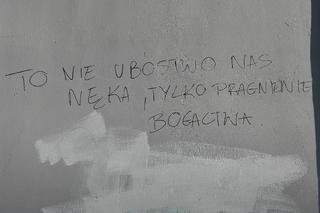 TO NIE UBÓSTWO NAS
NĘKA, TYLKO PRAGNIENIE
BOGACTWA.